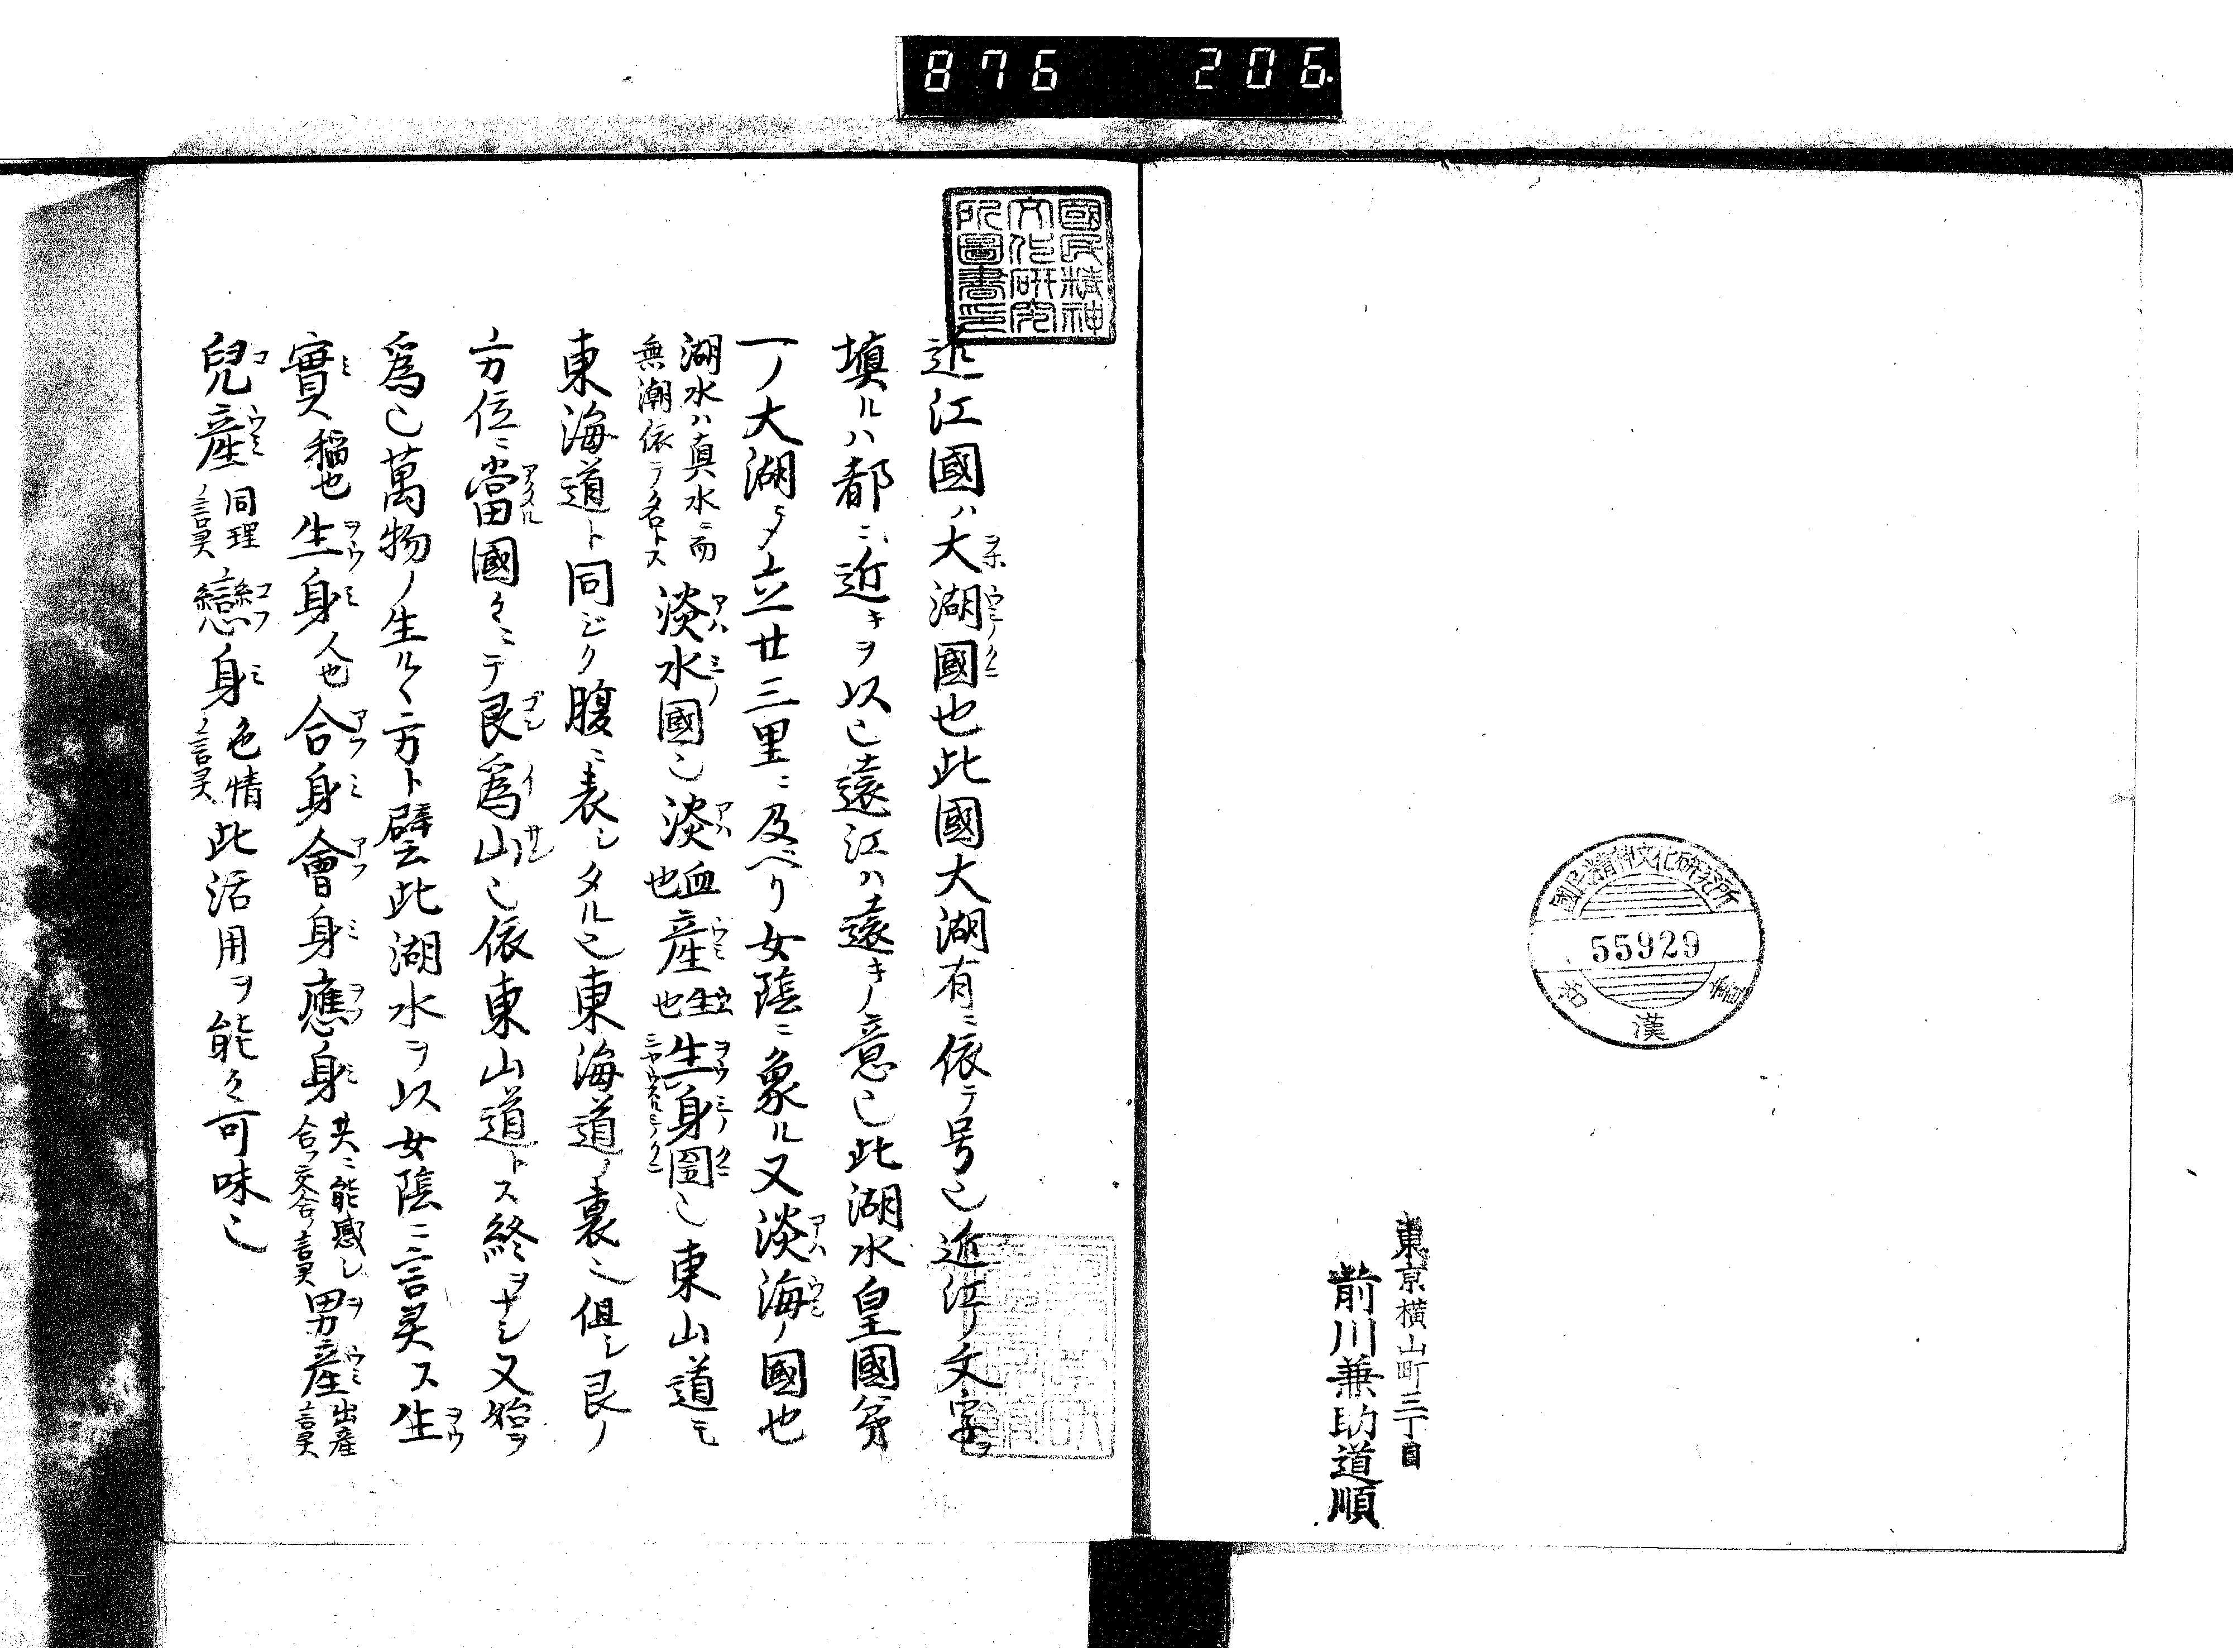 876 206.
東京横山町三丁目
前川兼助道順
國民精神文化研究所
55929
漢
國民精神
文化研究
所圖書印
近江國ハ大湖國也此國大湖有ニ依テ号也近江ノ文字ヲ
填ルハ都ニ近キヲ以也遠江ハ遠キノ意也此湖水皇國第
一ノ大湖ニ〆立廿三里ニ及ベリ女陰ニ象ル又淡海ノ國也
湖水ハ真水ニ而無潮依テ名トス淡水國也淡血也産生也生身國也東山道モ
東海道ト同ジク腹ニ表シタル也東海道ノ裏也但シ艮ノ
方位ニ當國々ニテ艮為山也依東山道トス終ヲナシ又始ヲ
為也萬物ノ生ルヽ方ト譬云此湖水ヲ以女陰ニ言灵ス生
實稲也生身人也合身會身應身共ニ能感シ合フ交合ノ言灵男産出産ノ言灵
兒産同理ノ言灵戀身色情ノ言灵此活用ヲ能々可味也